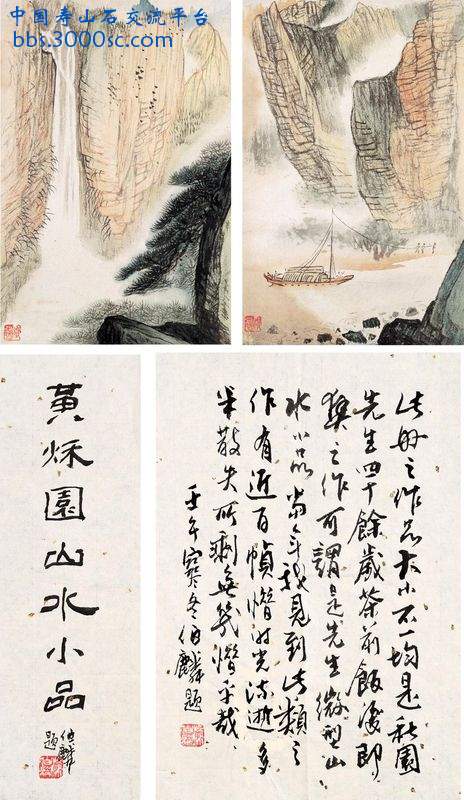 中国寿山石交流平台
bbs.3000sc.com
黃秋園山水小品
伯麟
題
此册之作品大小不一均是秋園
先生四十餘歲茶前飯後即
興之作可謂是先生微型山
水小品當年我見到此類之
作有近百幀惜時光流逝多
半散失所剩無幾惜乎哉
壬午寒冬伯麟題